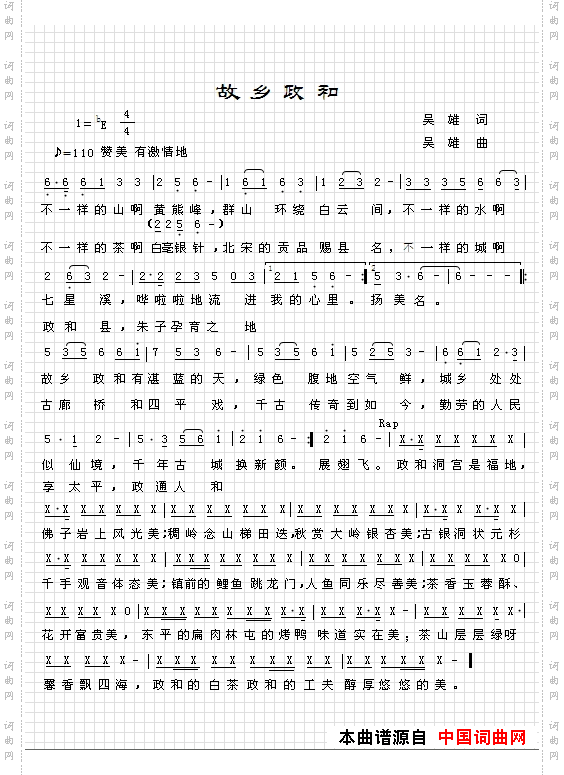 故乡政和
1=♭E 4/4
吴 雄 词
吴 雄 曲
♪=110 赞美 有激情地
6·6 6 1 3 3 | 2 5 6 - | 1 6 1 6 3 | 1 2 3 2 - | 3 3 3 5 6 6 3 |
不一样的山啊 黄熊峰，群山 环绕 白云 间，不一样的水啊
(2 2 5 6 -)
不一样的茶啊 白毫银针，北宋的贡品 赐县 名，不一样的城啊
2 6 3 2 - | 2·2 2 3 5 0 3 | 2 1 5 6 - :| 5 3·6 - | 6 - - - :
七星 溪，哗啦啦地流 进 我的心里。扬美名。
政和 县，朱子孕育之 地
5 3 5 6 6 1 | 7 5 3 6 - | 5 3 5 6 1 | 5 2 5 3 - | 6 6 1 2·3 |
故乡 政和有湛 蓝的天，绿色 腹地空气 鲜，城乡 处处
古廊 桥 和四平 戏，千古 传奇到如 今，勤劳的人民
Rap
5·1 2 - | 5·3 5 6 1 | 2 1 6 - :| 2 1 6 - | X·X X X X X X |
似仙境，千年古 城换新颜。展翅飞。政和洞宫是福地，
享太平，政通人 和
佛子岩上风光美；稠岭念山梯田迭，秋赏大岭银杏美；古银洞状元杉
千手观音体态美；镇前的鲤鱼跳龙门，人鱼同乐尽善美；茶香玉蓉酥、
花开富贵美，东平的扁肉林屯的烤鸭 味道实在美；茶山层层绿呀
馨香飘四海，政和的白茶政和的工夫 醇厚悠悠的美。
本曲谱源自 中国词曲网